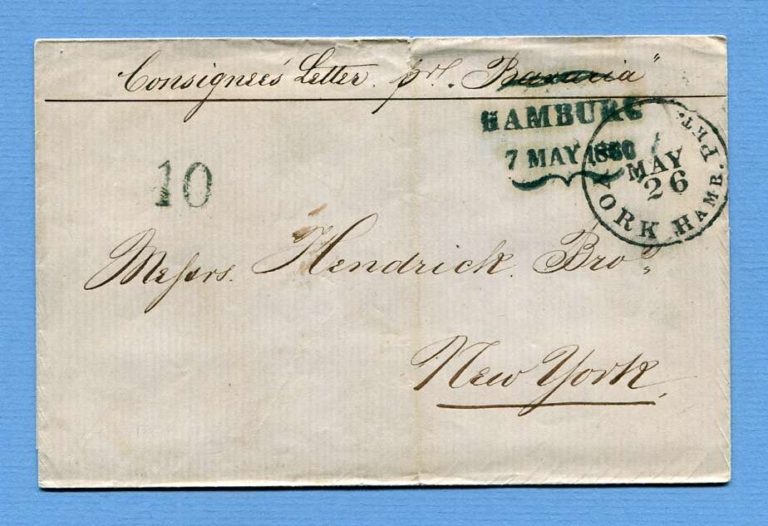 Consignees Letter. prl. „Bavaria"
HAMBURG
7 MAY 1860
YORK HAMB. PKT.
MAY
26
10
Messrs. Hendrick Bro.
New York.